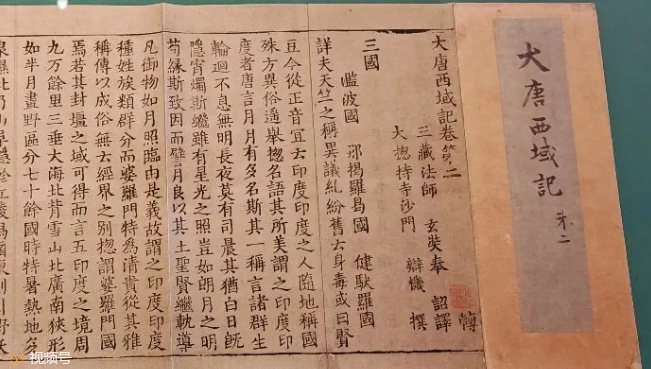 大唐西域記 㐧二
大唐西域記卷第二
三藏法師 玄奘奉 詔譯
大揔持寺沙門 辯機 撰
三國
濫波國 那揭羅曷國 健馱羅國
詳夫天竺之稱異議糺紛舊云身毒或曰賢
豆今從正音宜云印度印度之人隨地稱國
殊方異俗遥舉揔名語其所美謂之印度印
度者唐言月月有多名斯其一稱言諸群生
輪迴不息無明長夜莫有司晨其猶白日旣
隱宵燭斯繼雖有星光之照豈如朗月之明
苟緣斯致因而譬月良以其土聖賢繼軌導
凡御物如月照臨由是義故謂之印度印度
種姓族類群分而婆羅門特為清貴從其雅
稱傳以成俗無云經界之別揔謂婆羅門國
焉若其封壃之域可得而言五印度之境周
九万餘里三垂大海北背雪山北廣南狹形
如半月畫野區分七十餘國時特暑熱地多
视频号